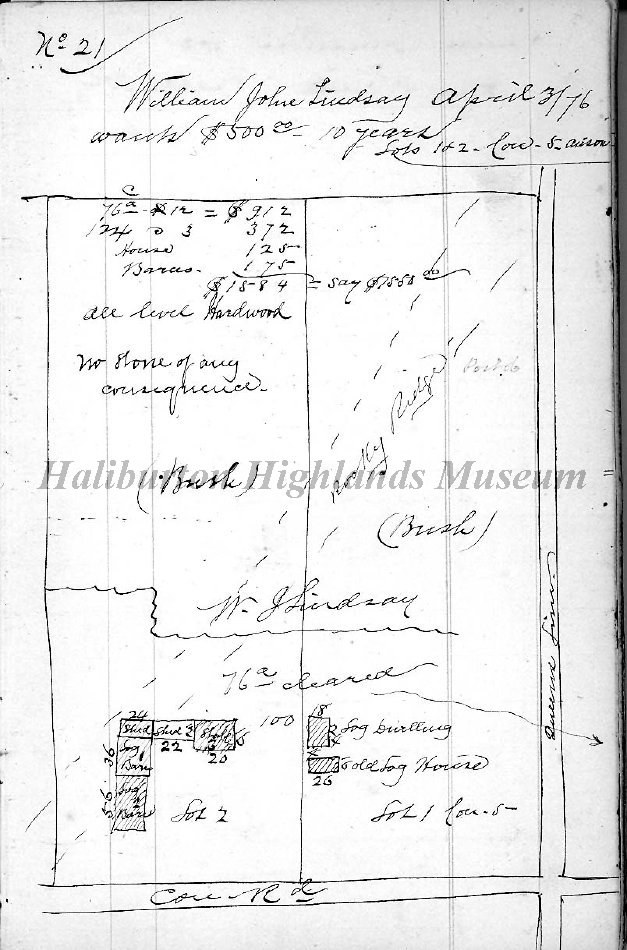 No 21
William John Lindsay April 3/76
wants $500 00 - 10 years
Lots 1 & 2 - Con - 5 - Anson
c
76 a - $12 = $912
124 @ 3 372
House 125
Barns - 175
$1584 = say $1550 00
All level Hardwood
no Stone of any
consequence -
Rocky Ridge
Haliburton Highlands Museum
(Bush)
(Bush)
W. J Lindsay
76 a cleared
24
Shed
Shed
22
Stable
20
100
18
Log Dwelling
36
Log
Barn
26
old Log House
56
Log
Barn
Lot 2
Lot 1 Con - 5
Con Rd